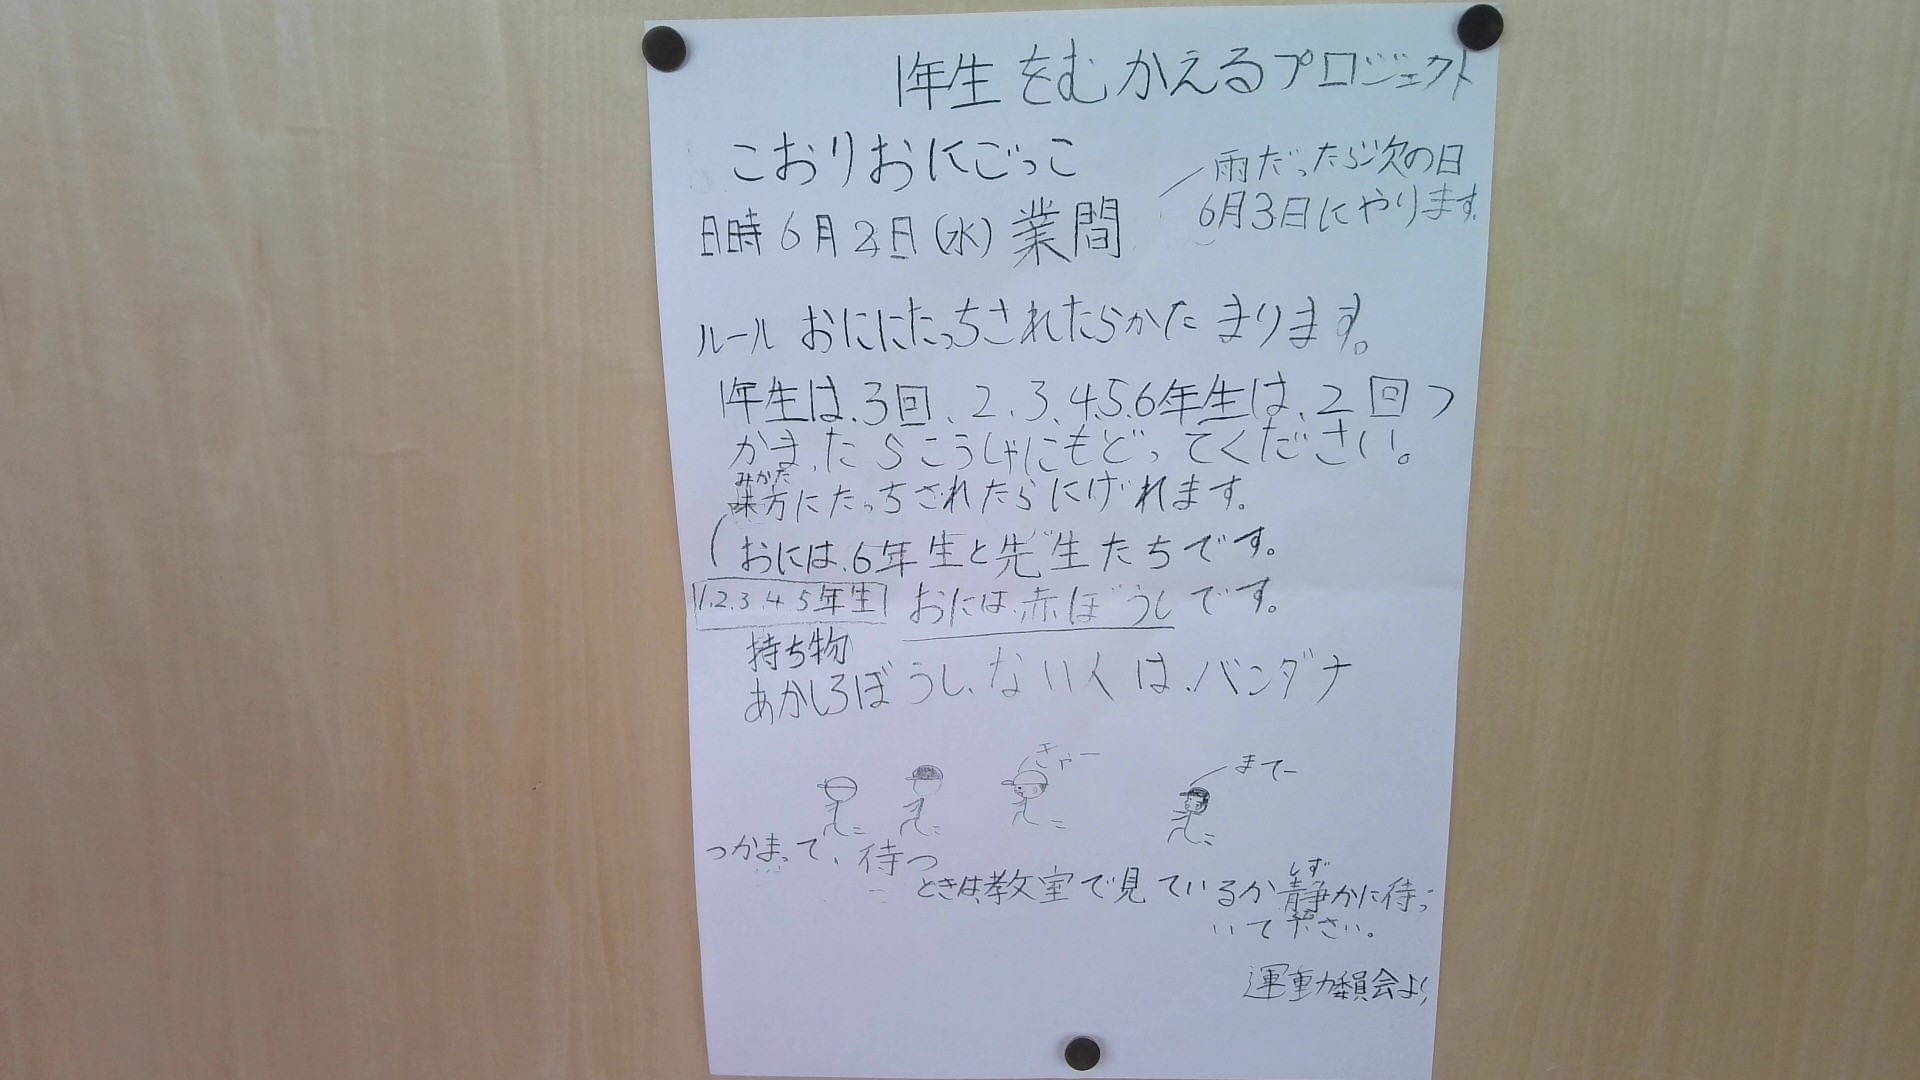 1年生をむかえるプロジェクト
こおりおにごっこ
雨だったら次の日
6月3日にやります。
日時 6月2日(水)業間
ルール おににたっちされたらかたまります。
1年生は、3回、2、3、4、5、6年生は、2回つ
かまったらこうしゃにもどってください。
みかた
味方にたっちされたらにげれます。
(おには、6年生と先生たちです。
1、2、3、4、5年生 おには、赤ぼうしです。
持ち物
あかしろぼうし、ない人は、バンダナ
きゃー
まてー
つかまって、待つ
ときは、教室で見ているか静かに待っ
しず
いて下さい。
運動委員会より